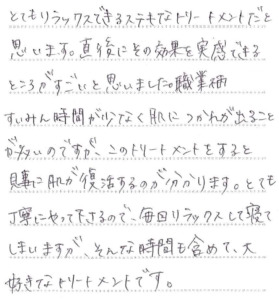 とてもリラックスできるステキなトリートメントだと
思います。直後にその効果を実感できる
ところがすごいと思いました。職業柄
すいみん時間が少なく肌につかれが出ること
が多いのですが、このトリートメントをすると
見事に肌が復活するのが分かります。とても
丁寧にやって下さるので、毎回リラックスして寝て
しまいますが、そんな時間も含めて、大
好きなトリートメントです。